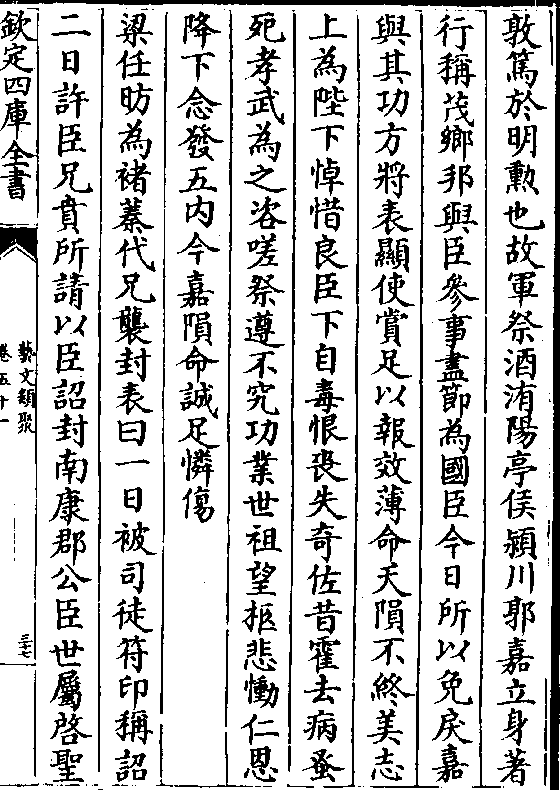 敦篤於明勲也故軍祭酒洧陽亭侯潁川郭嘉立身著
行稱茂鄉邦與臣參事盡節為國臣今日所以免戾嘉
與其功方將表顯使賞足以報效薄命夭隕不終美志
上為陛下悼惜良臣下自毒恨喪失奇佐昔霍去病蚤
死孝武為之咨嗟祭遵不究功業世祖望柩悲慟仁恩
降下念發五内今嘉隕命誠足憐傷
梁任昉為褚蓁代兄襲封表曰一日被司徒符印稱詔
二日許臣兄賁所請以臣詔封南康郡公臣世屬啓聖
欽定四庫全書
藝文類聚
卷五十一
三十七